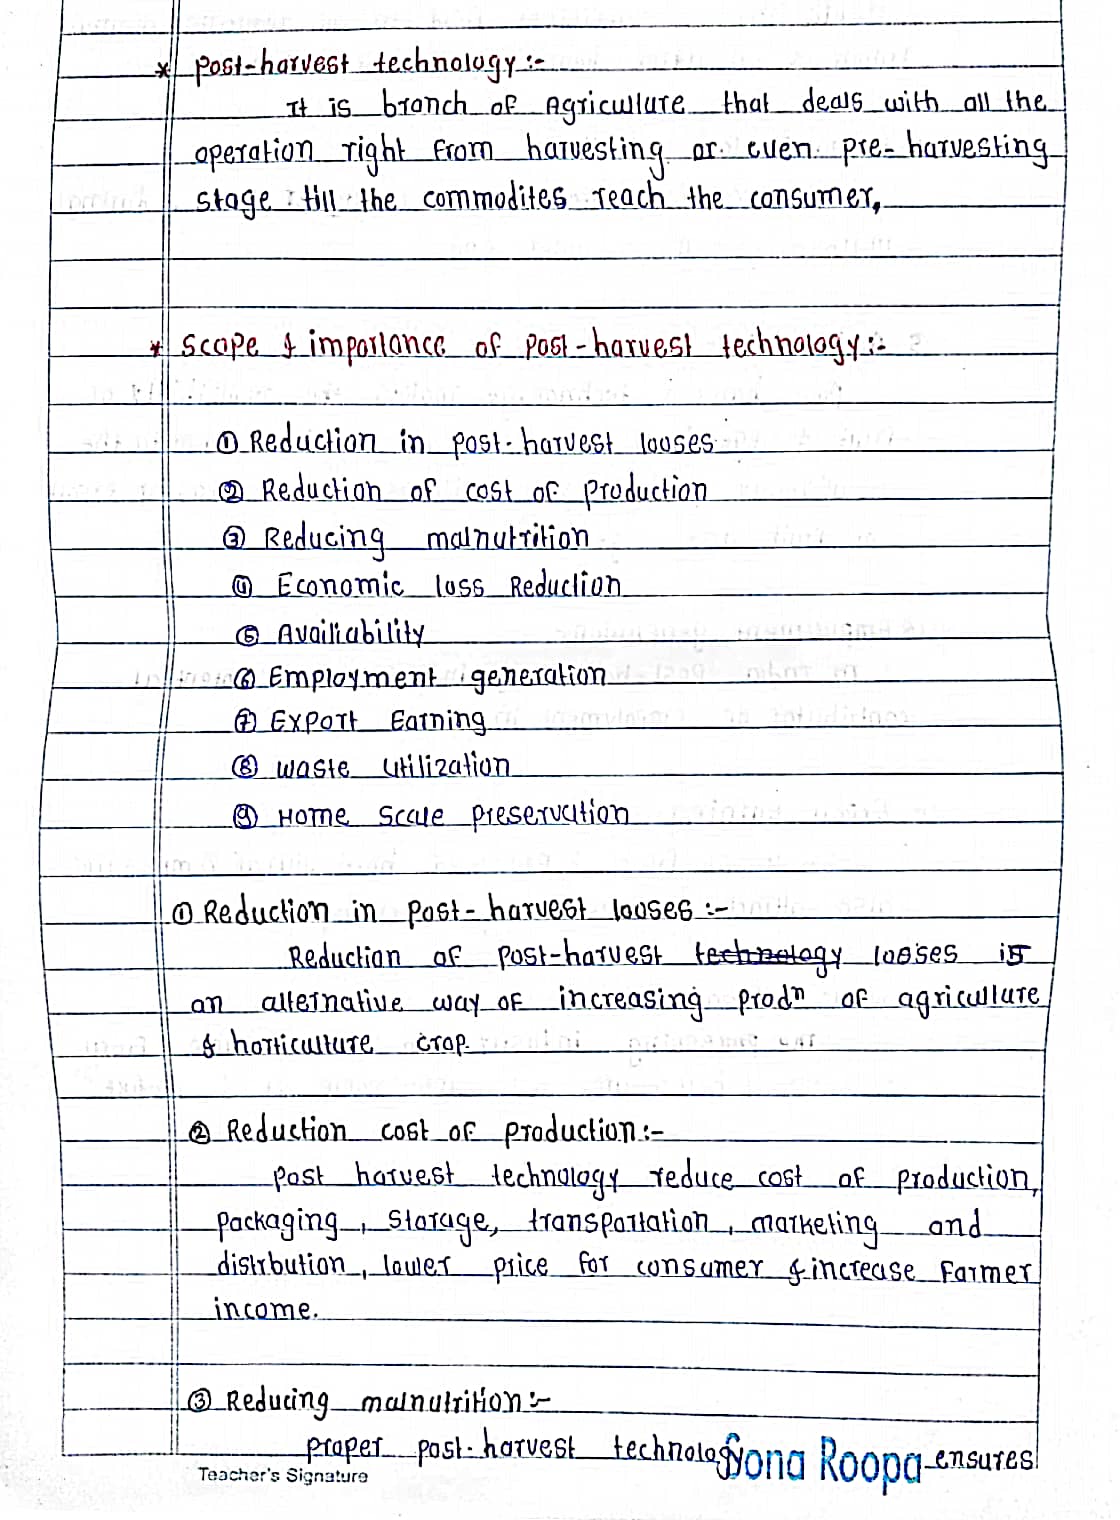 * Post-harvest technology :-
It is branch of Agriculture that deals with all the
operation right from harvesting or even pre-harvesting
stage till the commodites reach the consumer,
* Scope & importance of Post-harvest technology :-
① Reduction in post-harvest looses
② Reduction of cost of production
③ Reducing malnutrition
④ Economic loss Reduction
⑤ Availiability
⑥ Employment generation
⑦ Export Earning
⑧ waste utilization
⑨ Home Scale preservation
① Reduction in Post-harvest looses :-
Reduction of post-harvest technology looses is
an alternative way of increasing prodⁿ of agriculture
& horticulture crop.
② Reduction cost of production :-
Post harvest technology reduce cost of production,
packaging, storage, transportation, marketing and
distrbution, lower price for consumer & increase farmer
income.
③ Reducing malnutrition :-
proper post-harvest technology ensures
Sona Roopa
Teacher's Signature